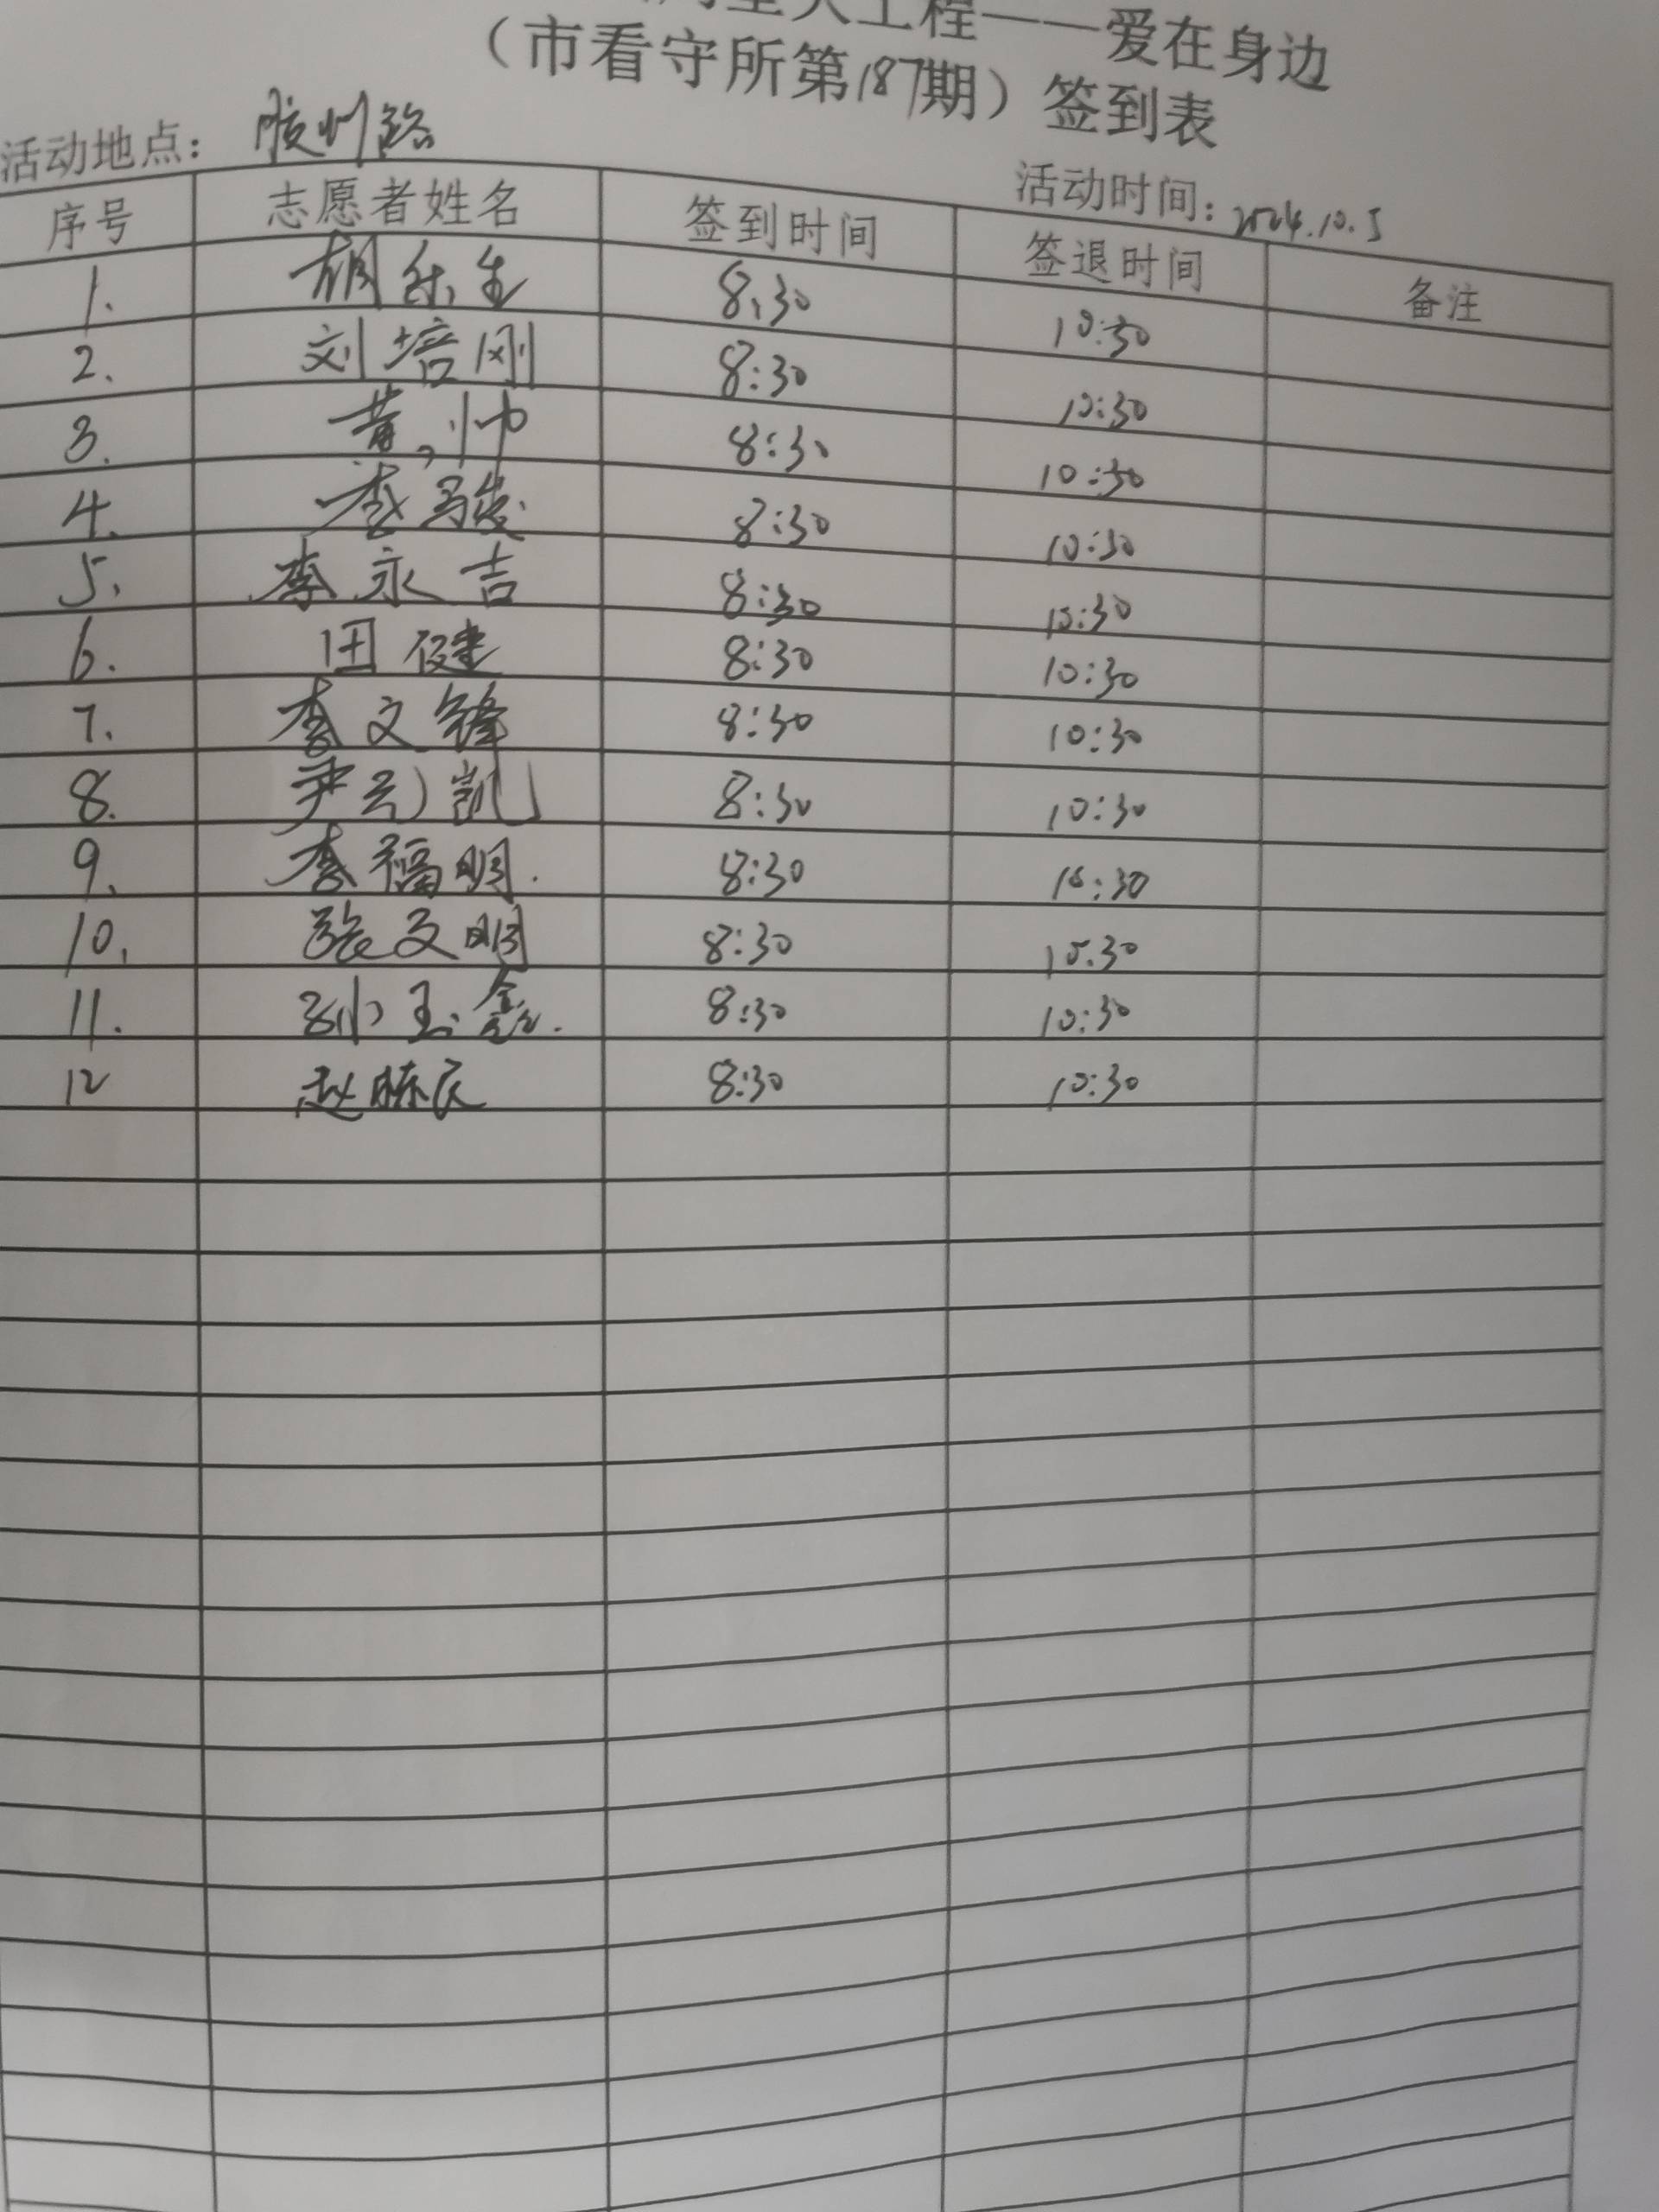 大工程——爱在身边
（市看守所第187期）签到表
活动地点：胶州路
活动时间：2024.10.5
序号 志愿者姓名 签到时间 签退时间 备注
1. 胡乐生 8:30 10:30
2. 刘培刚 8:30 10:30
3. 黄帅 8:30 10:30
4. 李骏 8:30 10:30
5. 李永吉 8:30 10:30
6. 田健 8:30 10:30
7. 李文锋 8:30 10:30
8. 尹云凯 8:30 10:30
9. 李福明. 8:30 10:30
10. 张文明 8:30 10:30
11. 孙玉鑫. 8:30 10:30
12 赵栋民 8:30 10:30